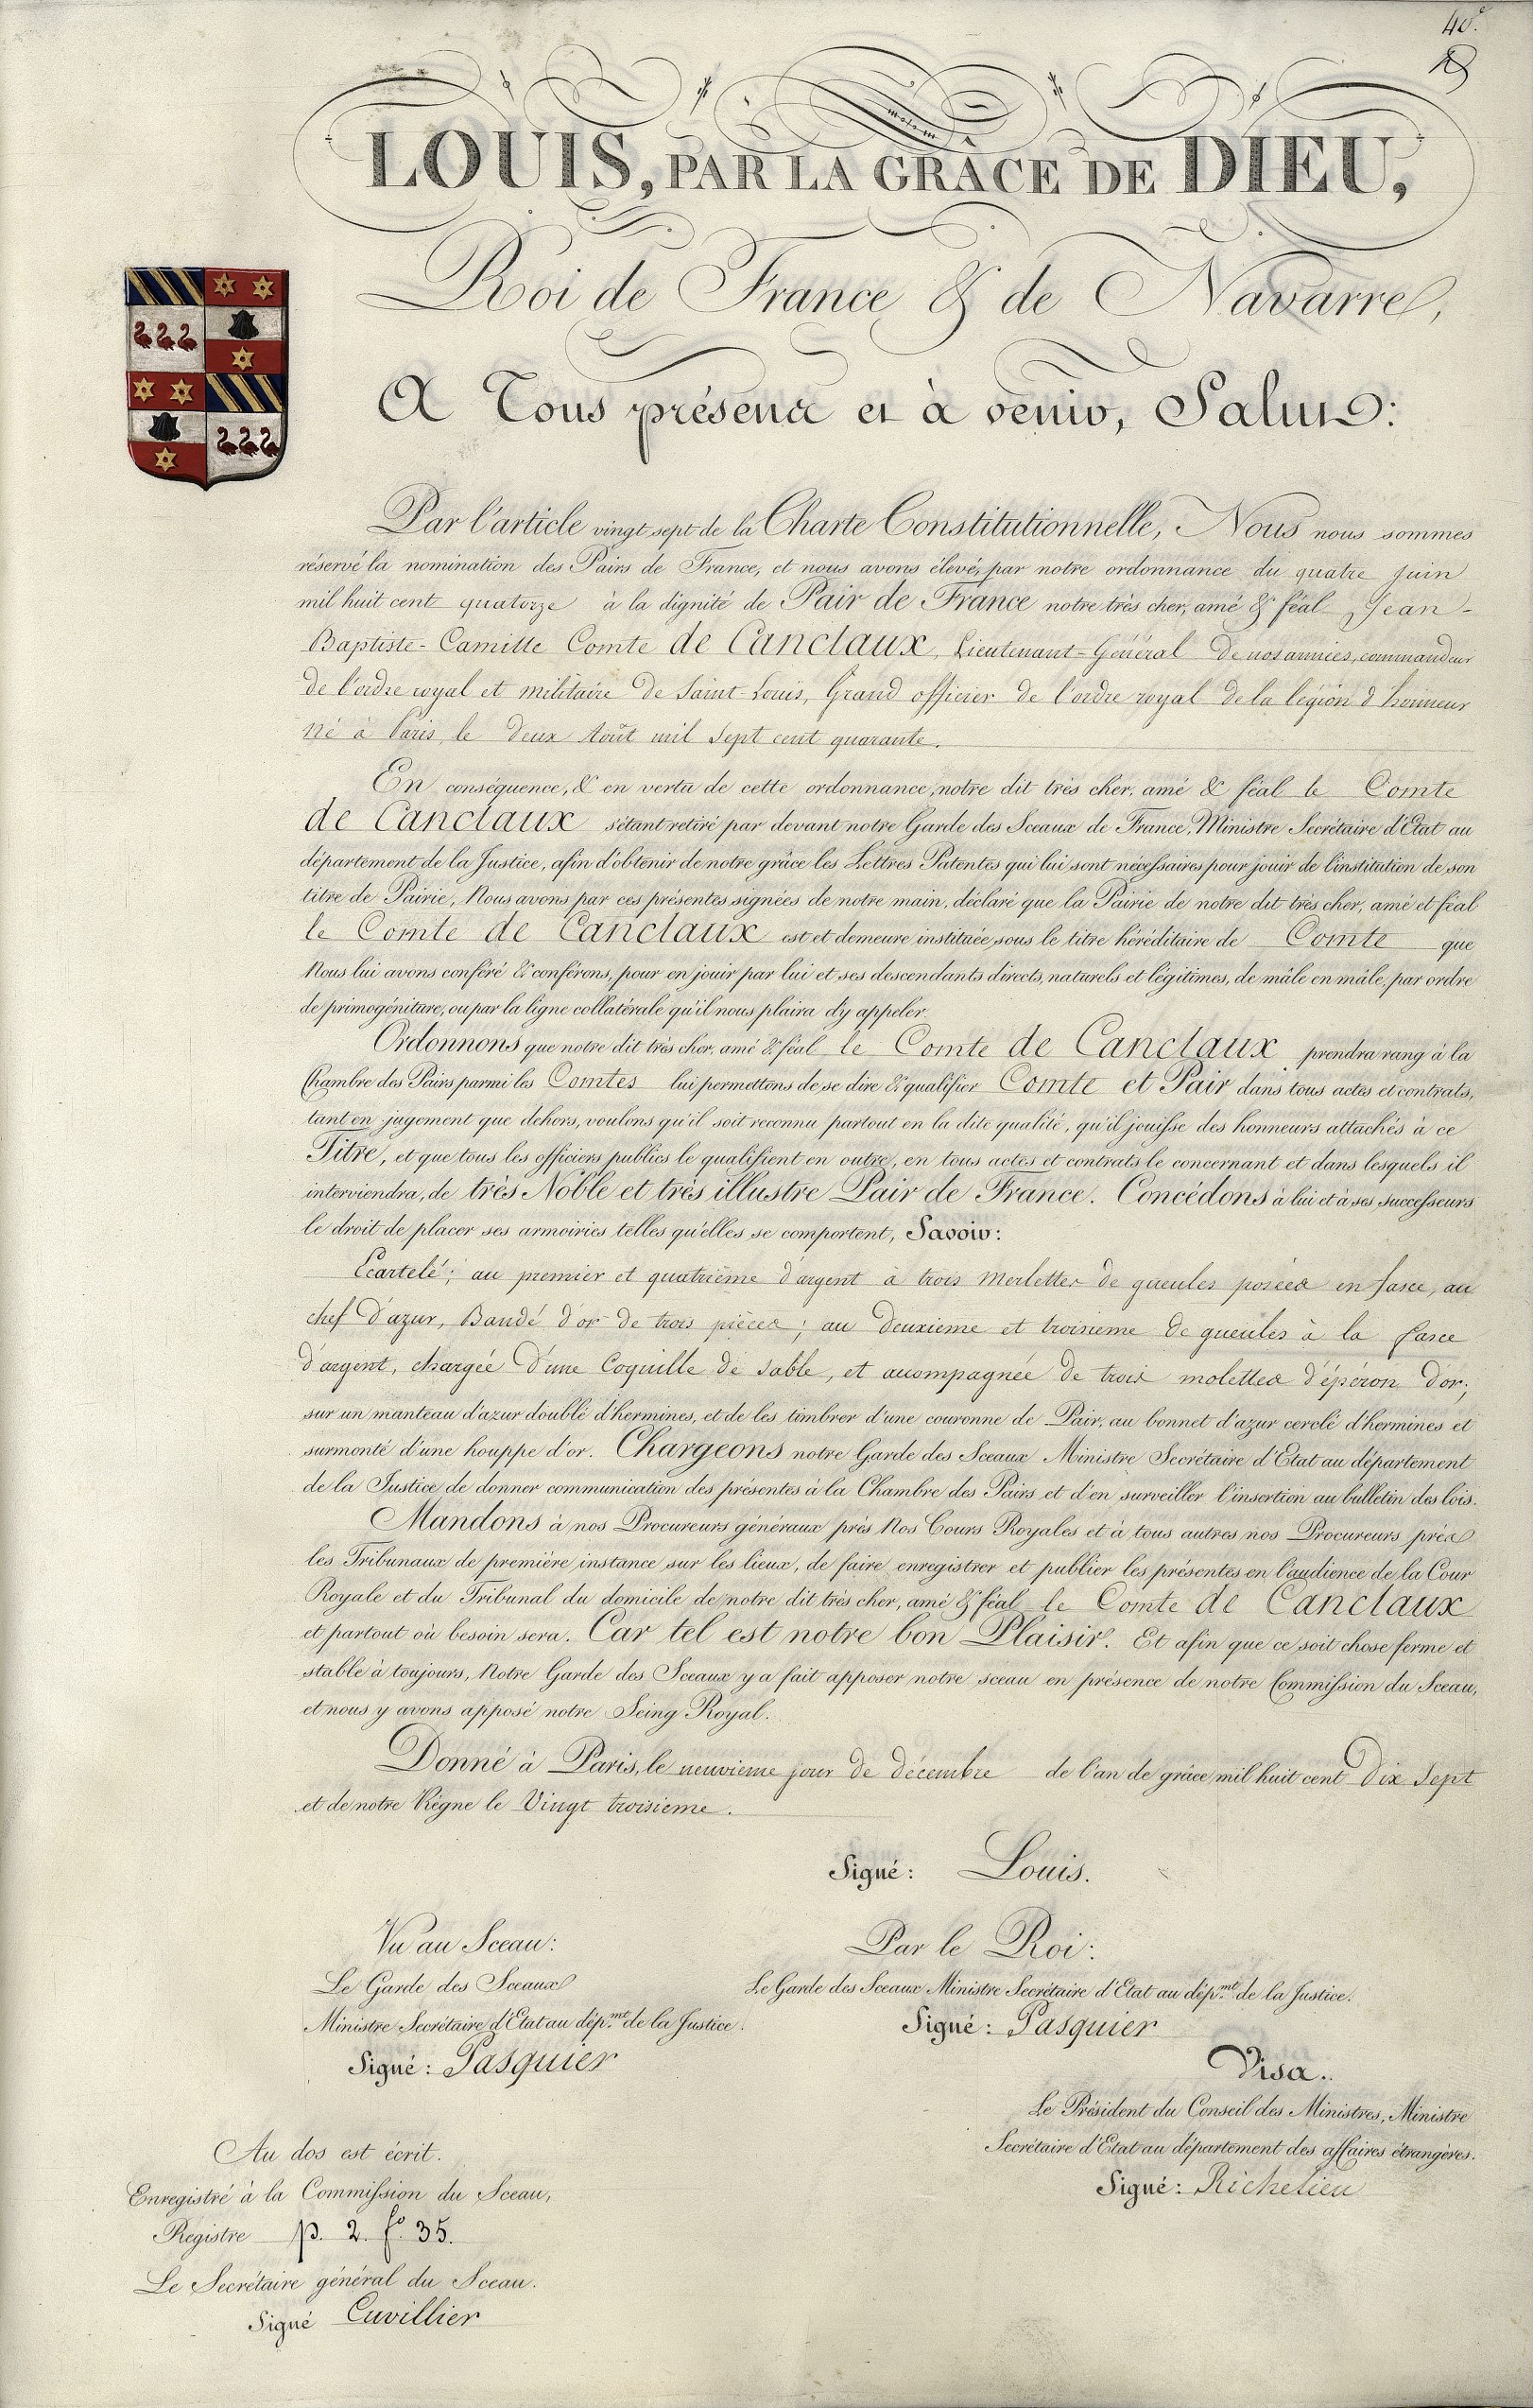 40.e
LOUIS, PAR LA GRÂCE DE DIEU,
Roi de France & de Navarre,
A Tous présens et à venir, Salut:
Par l'article vingt sept de la Charte Constitutionnelle, Nous nous sommes
réservé la nomination des Pairs de France, et nous avons élevé, par notre ordonnance du quatre juin
mil huit cent quatorze à la dignité de Pair de France notre très cher, amé & féal Jean-
Baptiste-Camille Comte de Canclaux, Lieutenant-Général de nos armées, commandeur
de l'ordre royal et militaire de Saint-Louis, Grand officier de l'ordre royal de la légion d'honneur
né à Paris, le deux Août mil sept cent quarante.
En conséquence, & en vertu de cette ordonnance, notre dit très cher, amé & féal le Comte
de Canclaux s'étant retiré par devant notre Garde des Sceaux de France, Ministre Secrétaire d'Etat au
département de la Justice, afin d'obtenir de notre grâce les Lettres Patentes qui lui sont nécessaires pour jouir de l'institution de son
titre de Pairie, Nous avons par ces présentes signées de notre main, déclaré que la Pairie de notre dit très cher, amé et féal
le Comte de Canclaux est et demeure instituée sous le titre héréditaire de Comte que
Nous lui avons conféré & conférons, pour en jouir par lui et ses descendants directs, naturels et légitimes, de mâle en mâle, par ordre
de primogéniture, ou par la ligne collatérale qu'il nous plaira d'y appeler.
Ordonnons que notre dit très cher, amé & féal le Comte de Canclaux prendra rang à la
Chambre des Pairs parmi les Comtes lui permettons de se dire & qualifier Comte et Pair dans tous actes et contrats,
tant en jugement que dehors, voulons qu'il soit reconnu partout en la dite qualité, qu'il jouisse des honneurs attachés à ce
Titre, et que tous les officiers publics le qualifient en outre, en tous actes et contrats le concernant et dans lesquels il
interviendra, de très Noble et très illustre Pair de France. Concédons à lui et à ses successeurs
le droit de placer ses armoiries telles qu'elles se comportent, Savoir:
Ecartelé; au premier et quatrième d'argent à trois merlettes de gueules posées en fasce, au
chef d'azur, Bandé d'or de trois pièces; au deuxieme et troisieme de gueules à la fasce
d'argent, chargée d'une Coquille de sable, et accompagnée de trois molettes d'éperon d'or;
sur un manteau d'azur doublé d'hermines, et de les timbrer d'une couronne de Pair, au bonnet d'azur cerclé d'hermines et
surmonté d'une houppe d'or. Chargeons notre Garde des Sceaux Ministre Secrétaire d'Etat au département
de la Justice de donner communication des présentes à la Chambre des Pairs et d'en surveiller l'insertion au bulletin des lois.
Mandons à nos Procureurs généraux près Nos Cours Royales et à tous autres nos Procureurs près
les Tribunaux de première instance sur les lieux, de faire enregistrer et publier les présentes en l'audience de la Cour
Royale et du Tribunal du domicile de notre dit très cher, amé & féal le Comte de Canclaux
et partout où besoin sera. Car tel est notre bon Plaisir. Et afin que ce soit chose ferme et
stable à toujours, Notre Garde des Sceaux y a fait apposer notre sceau en présence de notre Commission du Sceau,
et nous y avons apposé notre Seing Royal.
Donné à Paris, le neuvieme jour de décembre de l'an de grâce mil huit cent dix sept
et de notre Règne le Vingt troisieme.
Signé: Louis.
Vu au Sceau:
Le Garde des Sceaux
Ministre Secrétaire d'Etat au dép.mt de la Justice.
Signé: Pasquier
Par le Roi:
Le Garde des Sceaux Ministre Secrétaire d'Etat au dép.mt de la Justice.
Signé: Pasquier
Visa.
Le Président du Conseil des Ministres, Ministre
Secrétaire d'Etat au département des affaires étrangères.
Signé: Richelieu
Au dos est écrit.
Enregistré à la Commission du Sceau,
Registre p. 2. f.o 35.
Le Secrétaire général du Sceau.
Signé Cuvillier